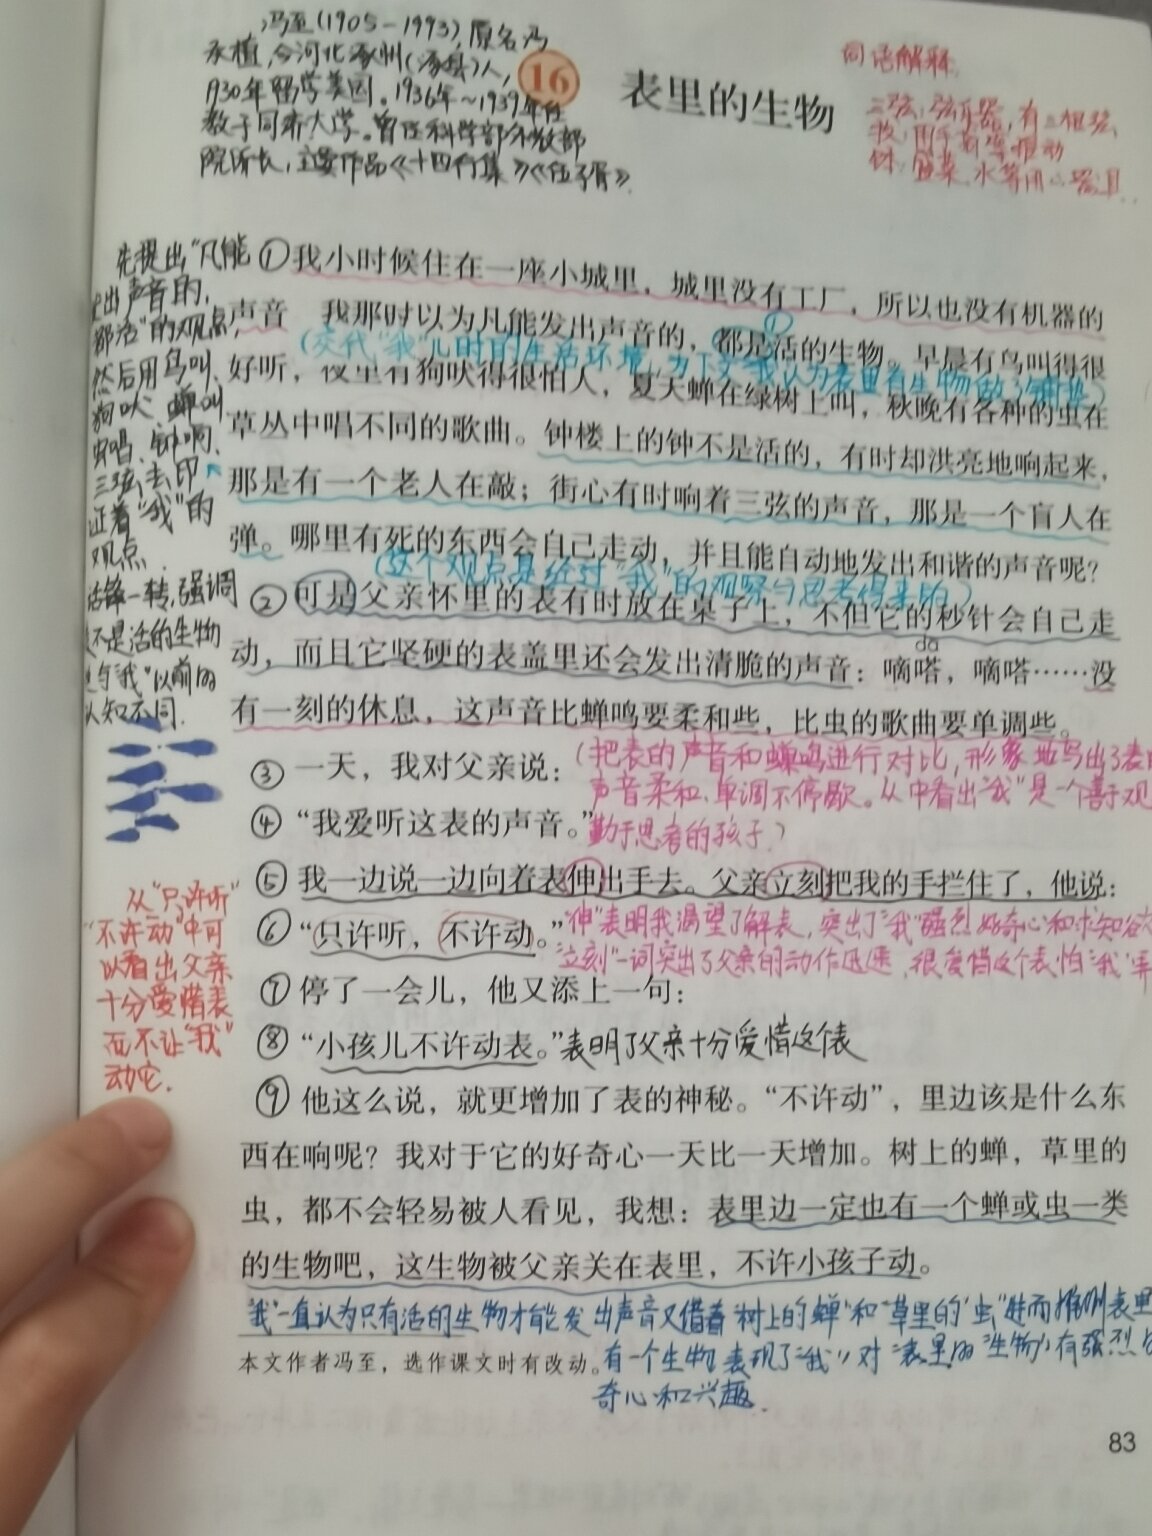 冯至(1905-1993),原名冯
承植,今河北涿州(涿县)人,
1930年留学美国。1936年~1939年任
教于同济大学。曾任科学部外教部
院所长,主要作品《十四行集》《伍子胥》.
16 表里的生物
词语解释
三弦:弦乐器,有三根弦
钵:盛菜、水等用心器具..
先提出“凡能
出声音的,
都活”的观点,
然后用鸟叫、
狗吠、蝉叫
虫唱、钟响、
三弦、去印
证着“我”的
观点.
话锋一转,强调
不是活的生物
与“我”以前的
认知不同.
①我小时候住在一座小城里,城里没有工厂,所以也没有机器的
声音 我那时以为凡能发出声音的,都是活的生物。早晨有鸟叫得很
(交代“我”儿时的生活环境,为下文“我认为表里有生物做了铺垫)
好听,夜里有狗吠得很怕人,夏天蝉在绿树上叫,秋晚有各种的虫在
草丛中唱不同的歌曲。钟楼上的钟不是活的,有时却洪亮地响起来,
那是有一个老人在敲;街心有时响着三弦的声音,那是一个盲人在
弹。哪里有死的东西会自己走动,并且能自动地发出和谐的声音呢?
(这个观点是经过“我”的观察与思考得来的)
②可是父亲怀里的表有时放在桌子上,不但它的秒针会自己走
动,而且它坚硬的表盖里还会发出清脆的声音:嘀嗒,嘀嗒……没
dā
有一刻的休息,这声音比蝉鸣要柔和些,比虫的歌曲要单调些。
③一天,我对父亲说:
(把表的声音和蝉鸣进行对比,形象地写出了表的
声音柔和、单调不停歇。从中看出“我”是一个善于观
④“我爱听这表的声音。”
勤于思考的孩子)
⑤我一边说一边向着表伸出手去。父亲立刻把我的手拦住了,他说:
⑥“只许听,不许动。”
“伸”表明我渴望了解表,突出了“我”强烈好奇心和求知欲
“立刻”一词突出了父亲的动作迅速,很爱惜这个表怕“我”弄
从“只许听”
“不许动”中可
以看出父亲
十分爱惜表
而不让“我”
动它.
⑦停了一会儿,他又添上一句:
⑧“小孩儿不许动表。”表明了父亲十分爱惜这个表
⑨他这么说,就更增加了表的神秘。“不许动”,里边该是什么东
西在响呢?我对于它的好奇心一天比一天增加。树上的蝉,草里的
虫,都不会轻易被人看见,我想:表里边一定也有一个蝉或虫一类
的生物吧,这生物被父亲关在表里,不许小孩子动。
“我”一直认为只有活的生物才能发出声音又借着“树上的蝉”和“草里的虫”进而推测表里
本文作者冯至,选作课文时有改动。
有一个生物表现了“我”对“表里的生物”有强烈
奇心和兴趣.
83